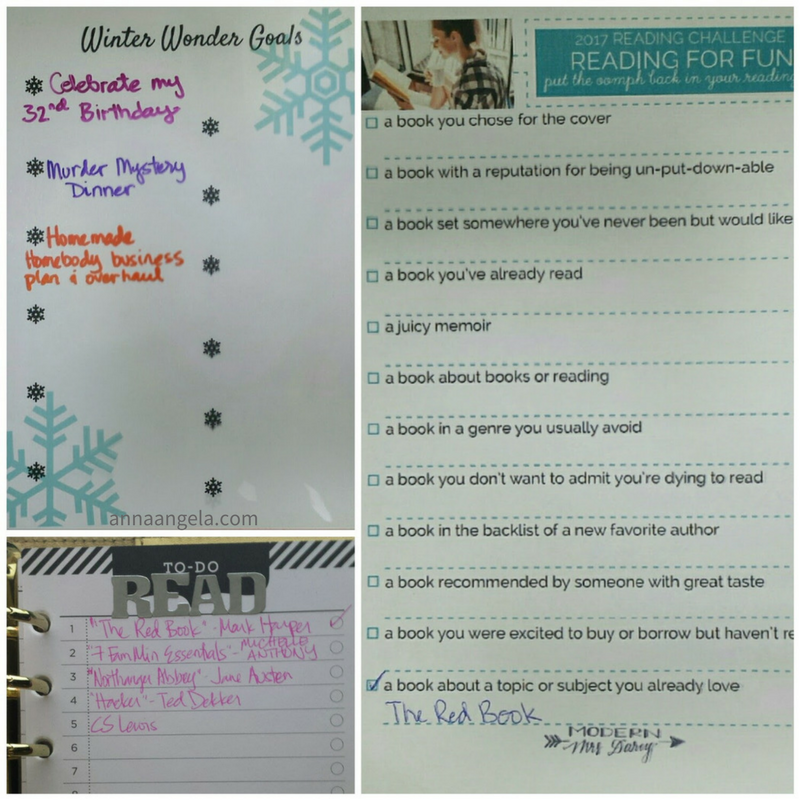 Winter Wonder Goals
Celebrate my
32nd Birthday
Murder Mystery
Dinner
Homemade
Homebody business
plan & overhaul
annaangela.com
TO-DO
READ
1 "The Red Book" - Mark Harper
2 "7 Fam Min Essentials" - MICHELLE
ANTHONY
3 "Northanger Abbey" - Jane Austen
4 "Hacker" - Ted Dekker
5 CS Lewis
6
7
2017 READING CHALLENGE
READING FOR FUN
put the oomph back in your reading
a book you chose for the cover
a book with a reputation for being un-put-down-able
a book set somewhere you've never been but would like
a book you've already read
a juicy memoir
a book about books or reading
a book in a genre you usually avoid
a book you don't want to admit you're dying to read
a book in the backlist of a new favorite author
a book recommended by someone with great taste
a book you were excited to buy or borrow but haven't re
a book about a topic or subject you already love
The Red Book
MODERN
Mrs Darcy